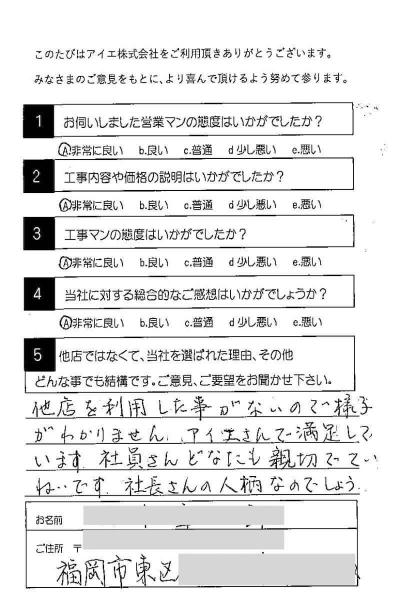 このたびはアイエ株式会社をご利用頂きありがとうございます。
みなさまのご意見をもとに、より喜んで頂けるよう努めて参ります。
1 お伺いしました営業マンの態度はいかがでしたか?
Ⓐ非常に良い b.良い c.普通 d 少し悪い e.悪い
2 工事内容や価格の説明はいかがでしたか?
Ⓐ非常に良い b.良い c.普通 d 少し悪い e.悪い
3 工事マンの態度はいかがでしたか?
Ⓐ非常に良い b.良い c.普通 d 少し悪い e.悪い
4 当社に対する総合的なご感想はいかがでしょうか?
Ⓐ非常に良い b.良い c.普通 d 少し悪い e.悪い
5 他店ではなくて、当社を選ばれた理由、その他
どんな事でも結構です。ご意見、ご要望をお聞かせ下さい。
他店を利用した事がないので様子
がわかりません。アイエさんで満足して
います 社員さんどなたも親切でてい
ねいです 社長さんの人柄なのでしょう。
お名前
ご住所 〒
福岡市東区